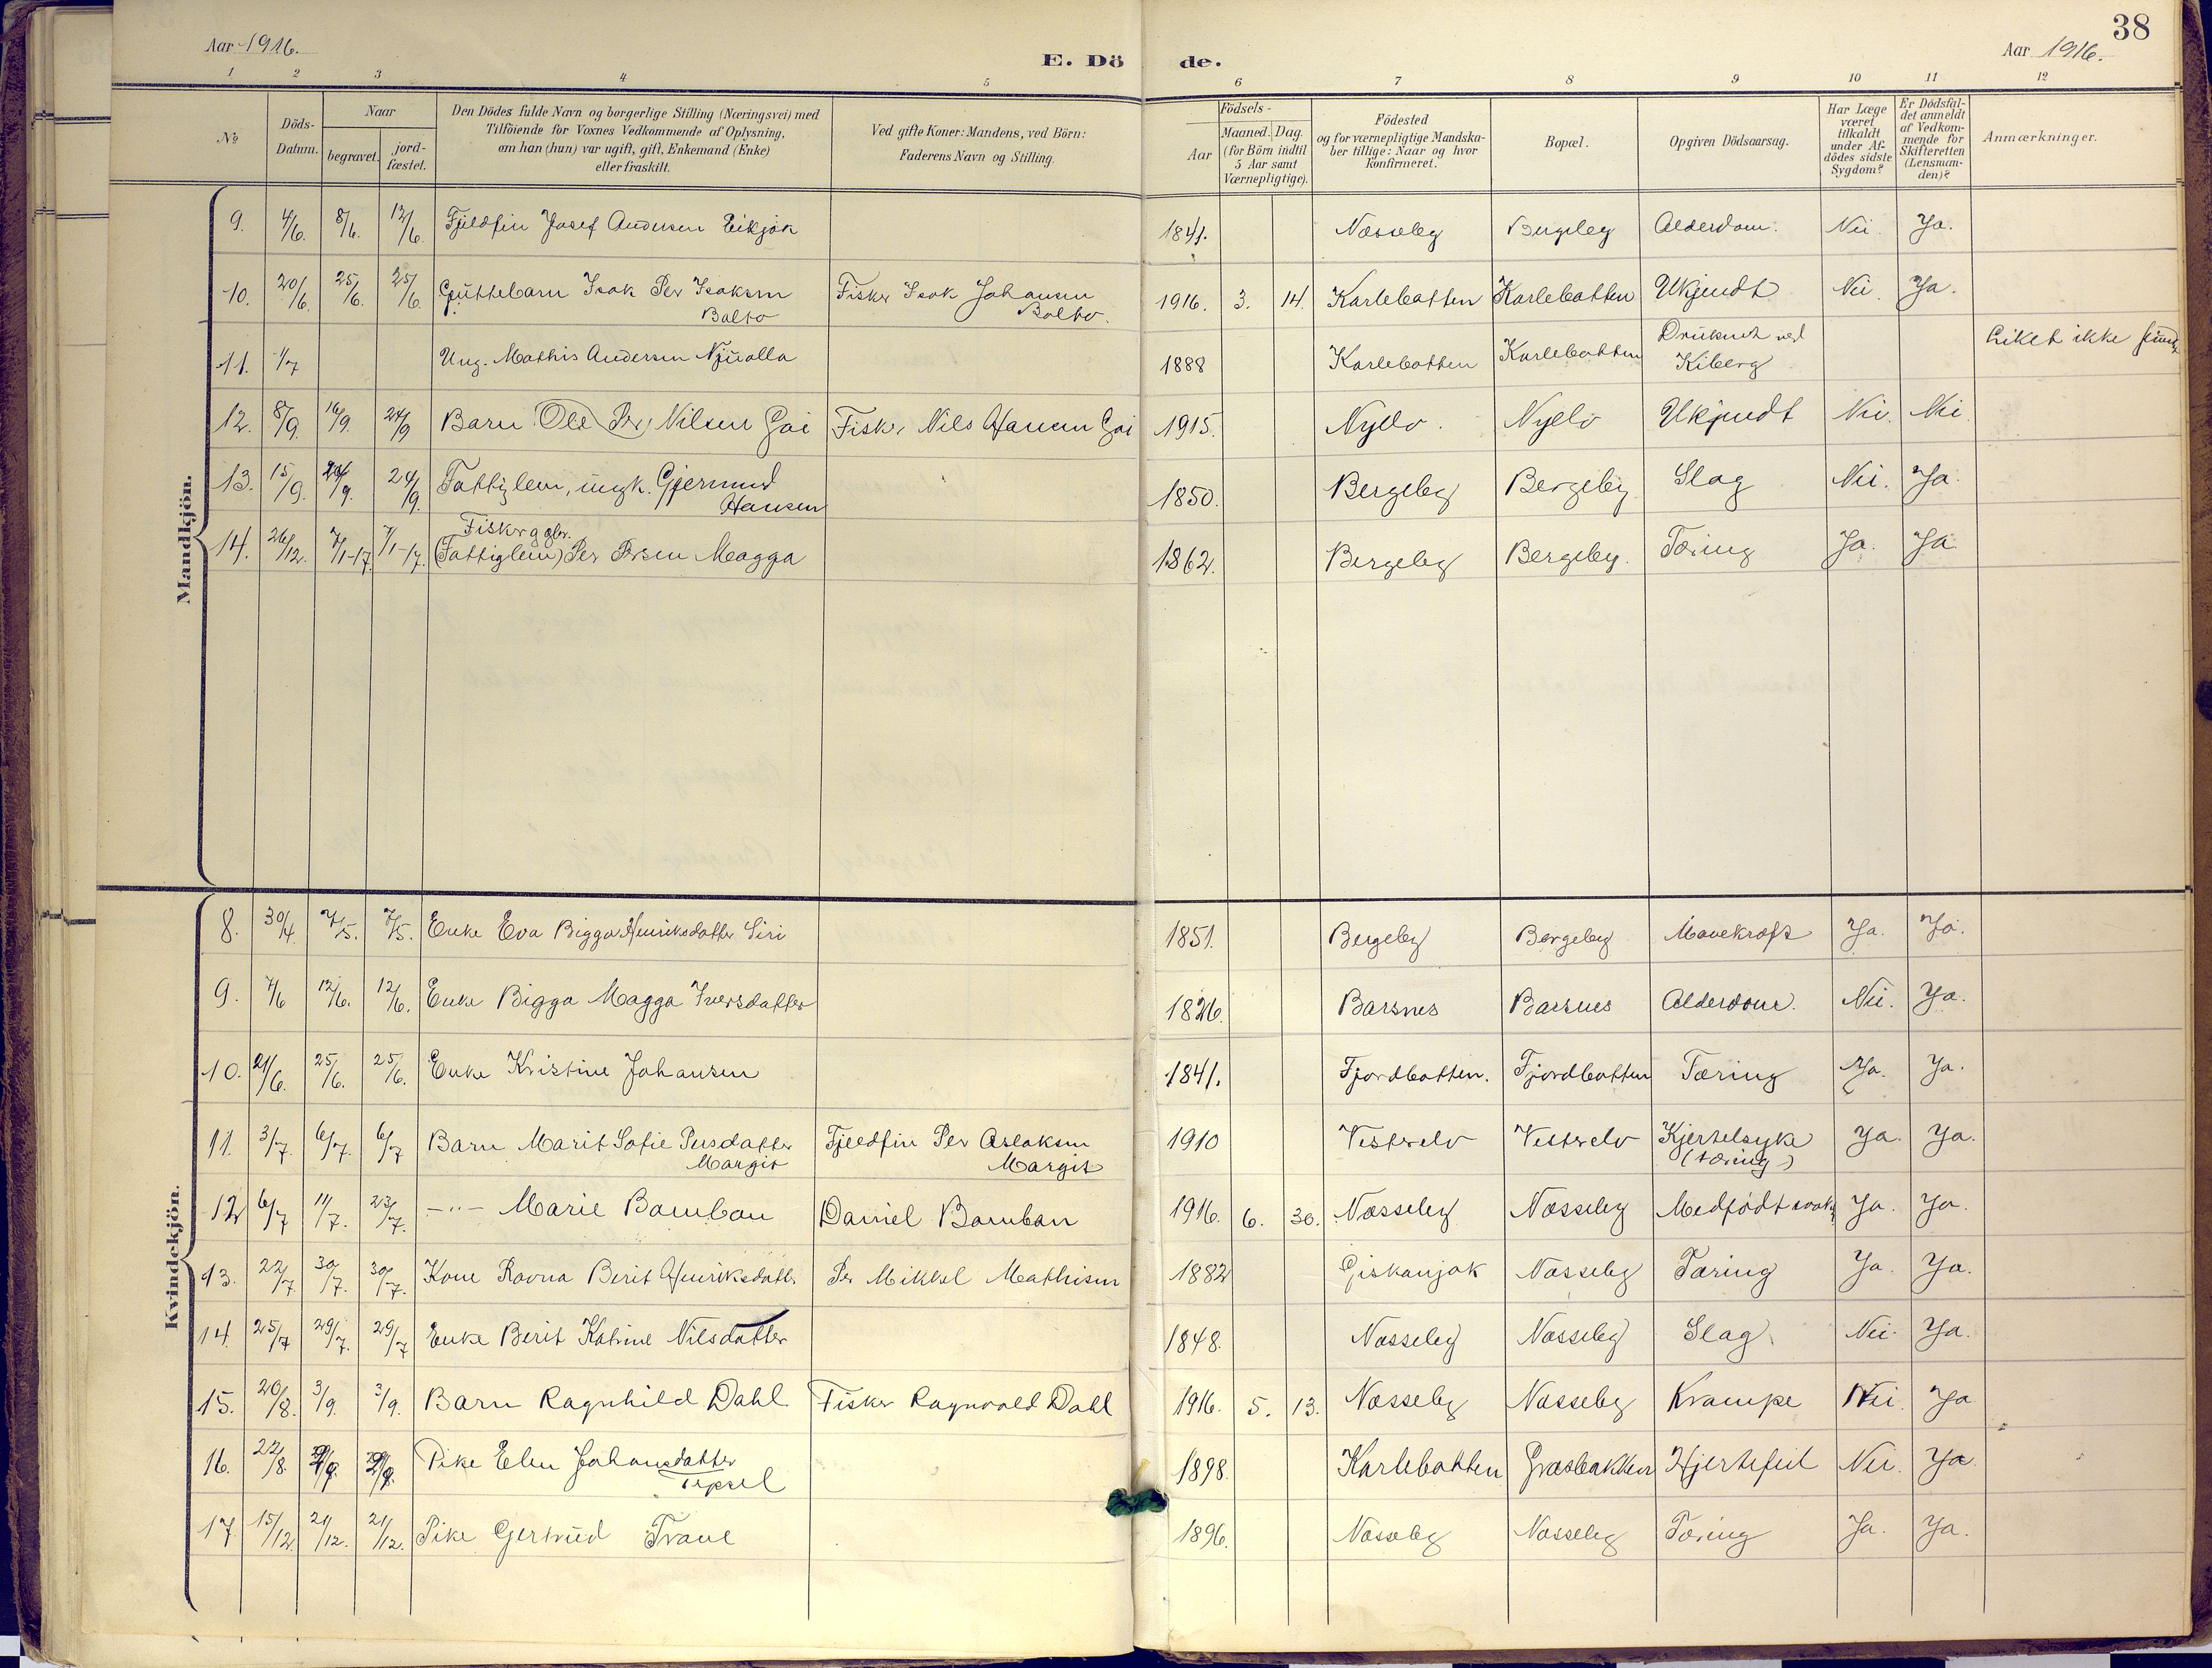 Aar 1916.
E. Dö de.
Aar 1916.
38
1 2 3 4 5 6 7 8 9 10 11 12
No
Döds-Datum.
Naar
begravet.
jord-fæstet.
Den Dödes fulde Navn og borgerlige Stilling (Næringsvei) med
Tilföiende for Voxnes Vedkommende af Oplysning,
om han (hun) var ugift, gift, Enkemand (Enke)
eller fraskilt.
Ved gifte Koner: Mandens, ved Börn:
Faderens Navn og Stilling.
Födsels-
Aar
Maaned. Dag.
(for Börn indtil
5 Aar samt
Værnepligtige).
Födested
og for værnepligtige Mandska-
ber tillige: Naar og hvor
konfirmeret.
Bopæl.
Opgiven Dödsaarsag.
Har Læge
været
tilkaldt
under Af-
dödes sidste
Sygdom?
Er Dödsfal-
det anmeldt
af Vedkom-
mende for
Skifteretten
(Lensman-
den)?
Anmærkninger.
Mandkjön.
9. 4/6. 8/6. 12/6. Fjeldfin Josef Andersen Eikjok 1841. Næsseby Bergeby Alderdom. Nei. Ja.
10. 20/6. 25/6. 25/6. Guttebarn Isak Per Isaksen Balto Fisker Isak Johansen Balto. 1916. 3. 14. Karlebotten Karlebotten Ukjendt Nei. Ja.
11. 1/7 Ung. Mathis Andersen Njualla 1888 Karlebotten Karlebotten Druknet ved Kiberg Liket ikke fundet
12. 8/9. 16/9. 24/9 Barn Ole Per Nilsen Gai Fisker Nils Hansen Gai 1915. Nyelv. Nyelv Ukjendt Nei. Nei
13. 15/9. 24/9. 24/9. Fattiglem, ungk. Gjermund Hansen 1850. Bergeby Bergeby Slag Nei. Ja.
14. 26/12. 7/1-17. 7/1-17. Fiskerggbr. (Fattiglem) Per Persen Magga 1862. Bergeby Bergeby. Tæring Ja. Ja
Kvindekjön.
8. 30/4. 7/5. 7/5. Enke Eva Bigga Henriksdatter Siri 1851. Bergeby Bergeby Mavekræft Ja. Ja.
9. 7/6 12/6. 12/6. Enke Bigga Magga Iversdatter 1826. Barsnes Barsnes Alderdom. Nei. Ja.
10. 21/6. 25/6. 25/6. Enke Kristine Johansen 1841. Fjordbotten. Fjordbotten Tæring Ja. Ja.
11. 3/7. 6/7. 6/7 Barn Marit Sofie Persdatter Margit Fjeldfin Per Aslaksen Margit 1910 Vesterelv Vesterelv Kjertelsyke (tæring) Ja. Ja.
12 6/7 11/7. 23/7. -"- Marie Bamban Daniel Bamban 1916. 6. 30. Næsseby Næsseby Medfødt svakh Ja. Ja.
13. 22/7 30/7. 30/7. Kone Ravna Berit Henriksdatter Per Mikkel Mathisen 1882 Giskanjok Næsseby Tæring Ja. Ja.
14. 25/7 29/7. 29/7 Enke Berit Katrine Nilsdatter 1848. Næsseby Næsseby Slag. Nei. Ja.
15. 20/8. 3/9. 3/9. Barn Ragnhild Dahl Fisker Ragnvald Dahl 1916. 5. 13. Næsseby Næsseby Krampe Nei. Ja
16. 22/8. Pike Elen Johansdatter 1898. Karlebotten Græsbakken Hjertefeil Nei. Ja.
17. 15/12. 21/12. 21/12. Pike Gertrud Trane 1896. Næsseby Næsseby Tæring Ja. Ja.